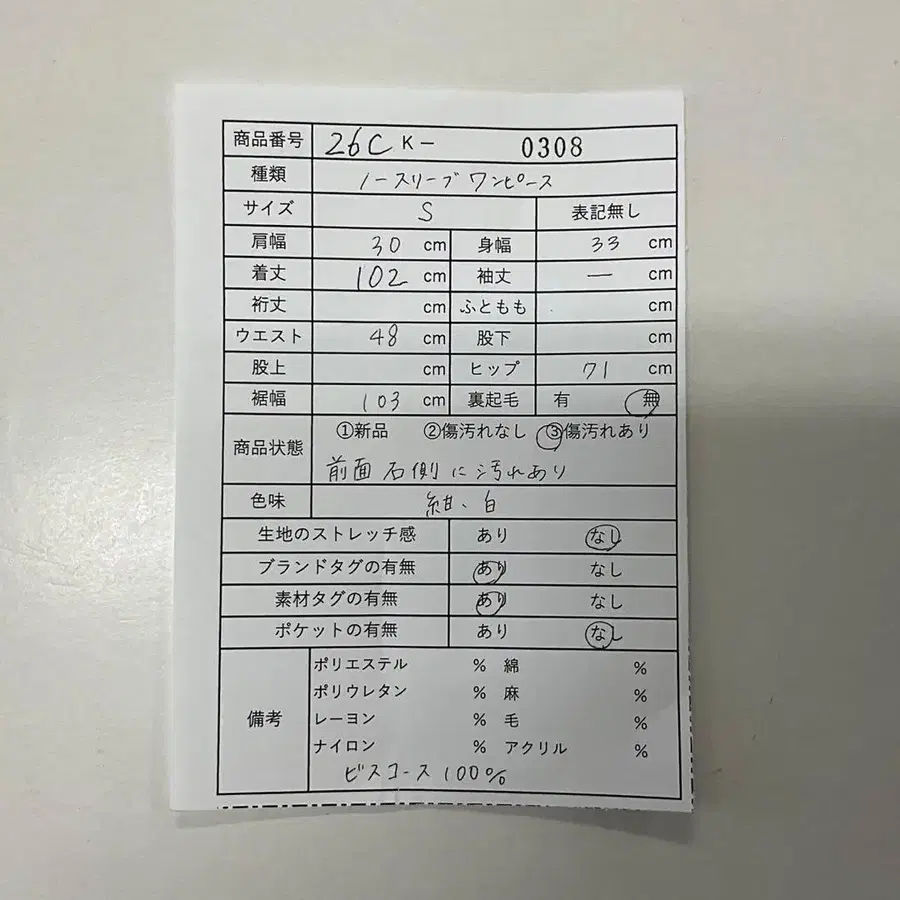 商品番号 26C K- 0308
種類 ノースリーブワンピース
サイズ S 表記無し
肩幅 30 cm 身幅 33 cm
着丈 102 cm 袖丈 — cm
裄丈 cm ふともも cm
ウエスト 48 cm 股下 cm
股上 cm ヒップ 71 cm
裾幅 103 cm 裏起毛 有 無
商品状態 ①新品 ②傷汚れなし ③傷汚れあり
前面 右側に汚れあり
色味 紺、白
生地のストレッチ感 あり なし
ブランドタグの有無 あり なし
素材タグの有無 あり なし
ポケットの有無 あり なし
備考
ポリエステル % 綿 %
ポリウレタン % 麻 %
レーヨン % 毛 %
ナイロン % アクリル %
ビスコース 100%